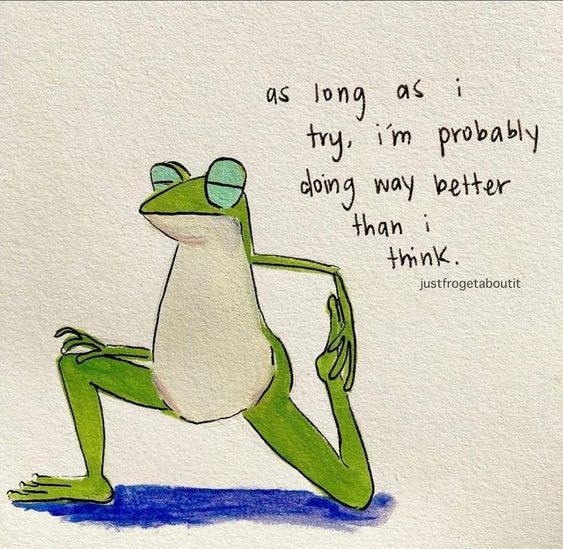 as long as i
try, i'm probably
doing way better
than i
think.
justfrogetaboutit